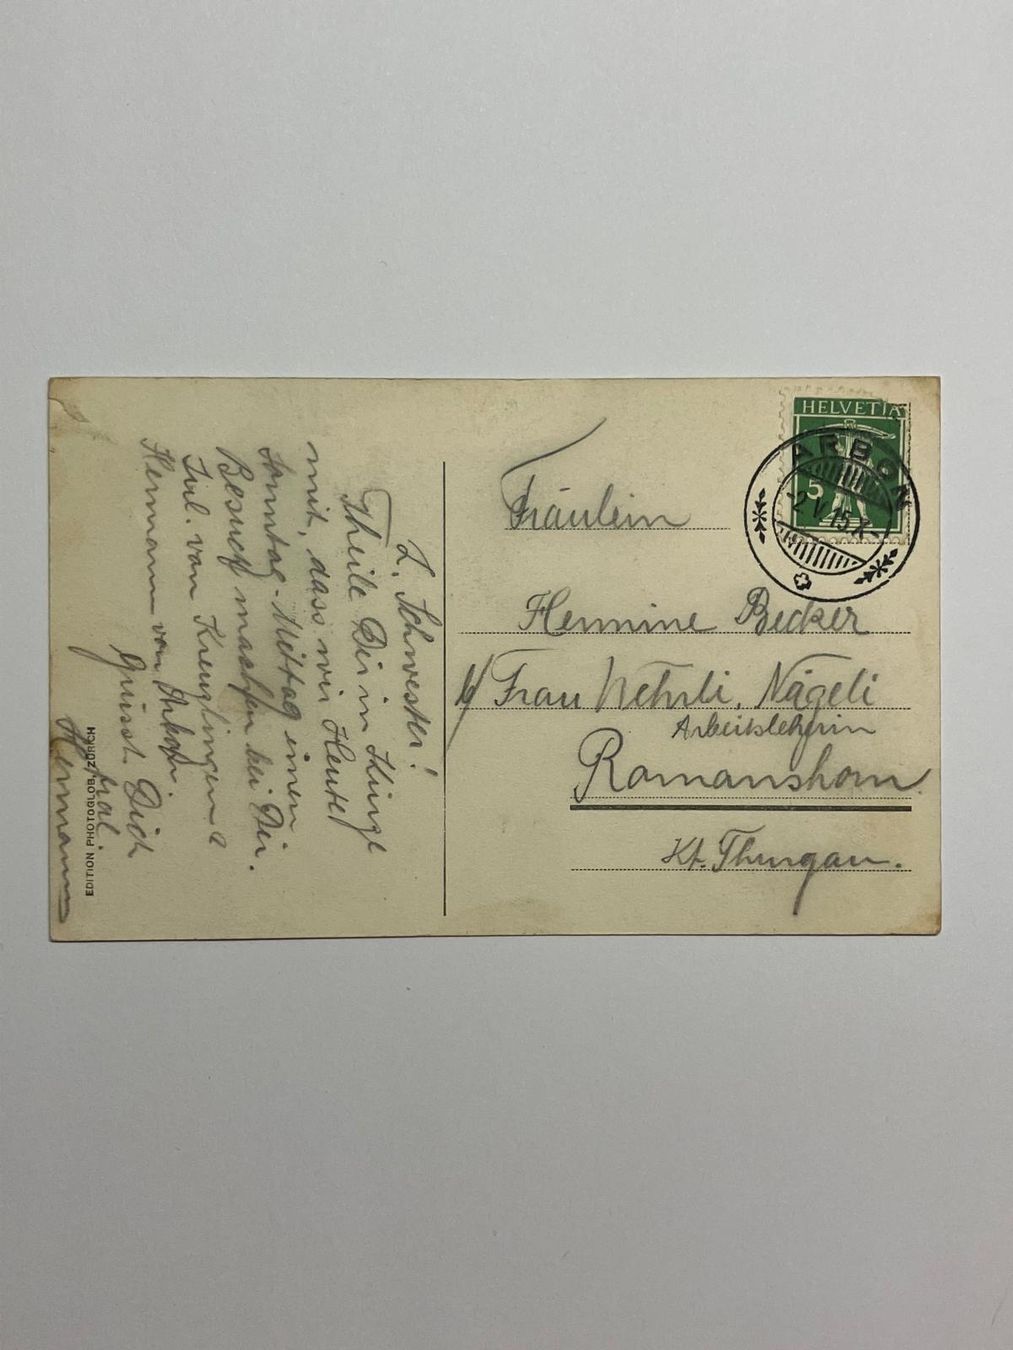 L. Schwester!
Theile Dir in Kürze
mit, dass wir Heute
Sonntag-Mittag einen
Besuch machen bei Dir.
Frl. van Kreuzlingen &
Hermann von Arbon.
Grüsst Dich
Hermann
EDITION PHOTOGLOB, ZÜRICH
HELVETIA
5
ARBON
2 V 15
Fräulein
Hermine Becker
b/ Frau Wehrli, Nägeli
Arbeitslehrin
Romanshorn
Kt. Thurgau.